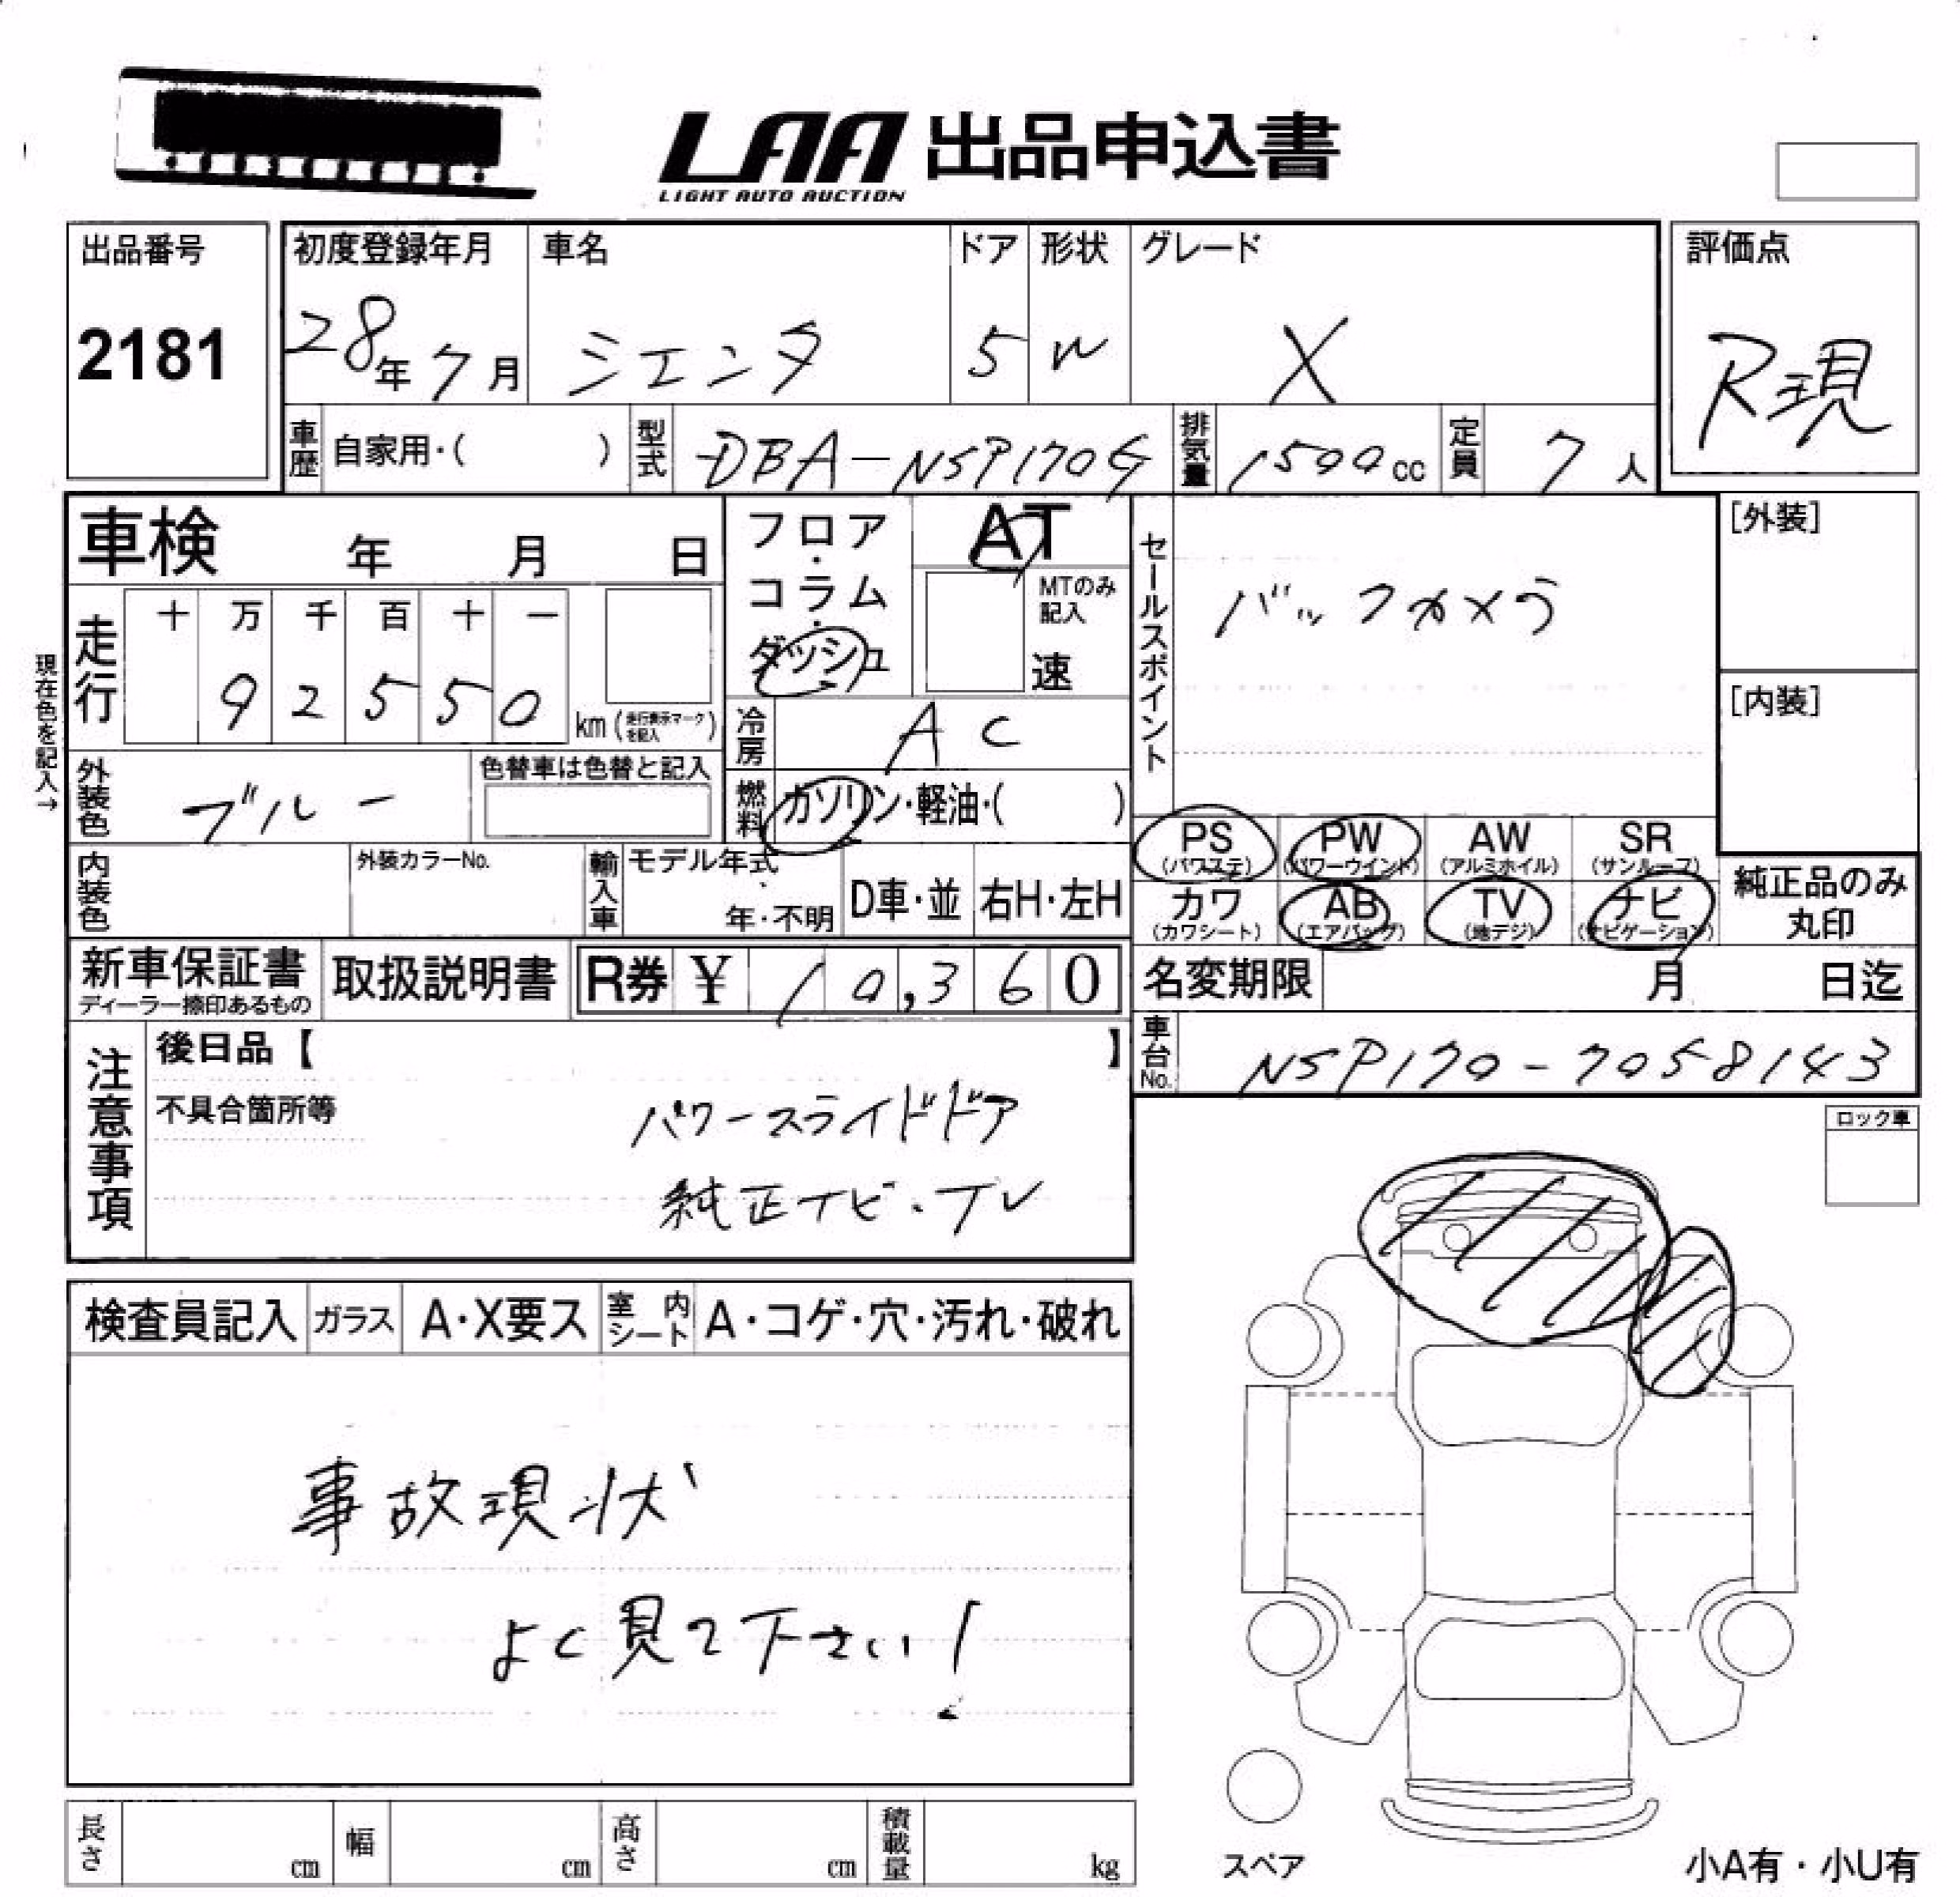 LAA 出品申込書
LIGHT AUTO AUCTION
出品番号
2181
初度登録年月
28年 7月
車名
シエンタ
ドア
5
形状
W
グレード
X
評価点
R現
車歴 自家用・( )
型式 DBA-NSP170G
排気量 1500cc
定員 7人
車検 年 月 日
フロア・コラム・ダッシュ
AT
MTのみ記入
速
走行
十 万 千 百 十 一
9 2 5 5 0
km (走行表示マークを記入)
現在色を記入→
冷房 AC
外装色 ブルー
色替車は色替と記入
燃料 ガソリン・軽油・( )
セールスポイント
バックカメラ
[外装]
[内装]
PS (パワステ)
PW (パワーウインド)
AW (アルミホイル)
SR (サンルーフ)
カワ (カワシート)
AB (エアバッグ)
TV (地デジ)
ナビ (ナビゲーション)
純正品のみ丸印
内装色
外装カラーNo.
輸入車
モデル年式
年・不明
D車・並
右H・左H
新車保証書
ディーラー捺印あるもの
取扱説明書
R券 ¥ 10,360
名変期限 月 日迄
車台No. NSP170-7058143
注意事項
後日品【 】
不具合箇所等
パワースライドドア
純正ナビ・TV
ロック車
検査員記入
ガラス A・X要ス
室内シート A・コゲ・穴・汚れ・破れ
事故現状
よく見て下さい!
長さ cm
幅 cm
高さ cm
積載量 kg
スペア
小A有・小U有